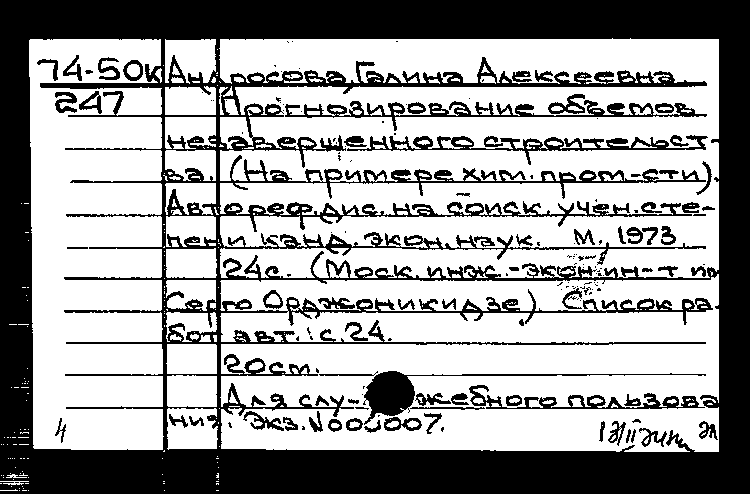 74-50к Андросова, Галина Алексеевна.
247 Прогнозирование объемов
незавершенного строительст-
ва. (На примере хим. пром-сти).
Автореф. дис. на соиск. учен. сте-
пени канд. экон. наук. М., 1973.
24с. (Моск. инж.-экон. ин-т им
Серго Орджоникидзе). Список ра-
бот авт.: с. 24.
20см.
Для слу-жебного пользова
ния. Экз. N000007.
4